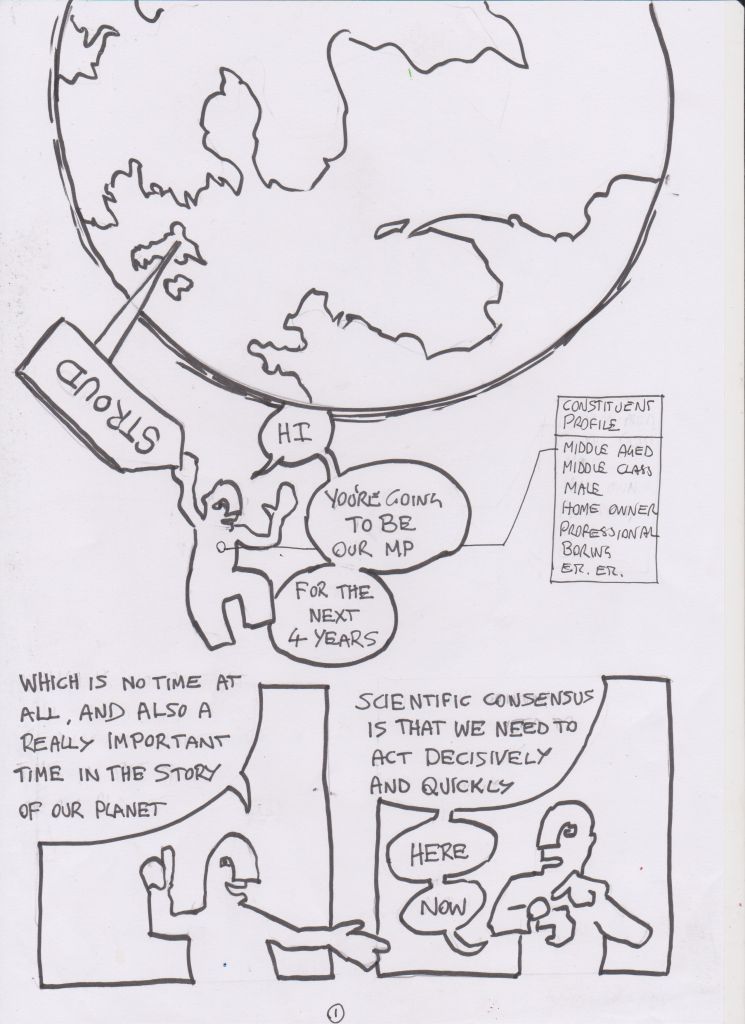 STROUD
HI
YOU'RE GOING
TO BE
OUR MP
FOR THE
NEXT
4 YEARS
CONSTITUENT
PROFILE
MIDDLE AGED
MIDDLE CLASS
MALE
HOME OWNER
PROFESSIONAL
BORING
ER. ER.
WHICH IS NO TIME AT
ALL, AND ALSO A
REALLY IMPORTANT
TIME IN THE STORY
OF OUR PLANET
SCIENTIFIC CONSENSUS
IS THAT WE NEED TO
ACT DECISIVELY
AND QUICKLY
HERE
NOW
1